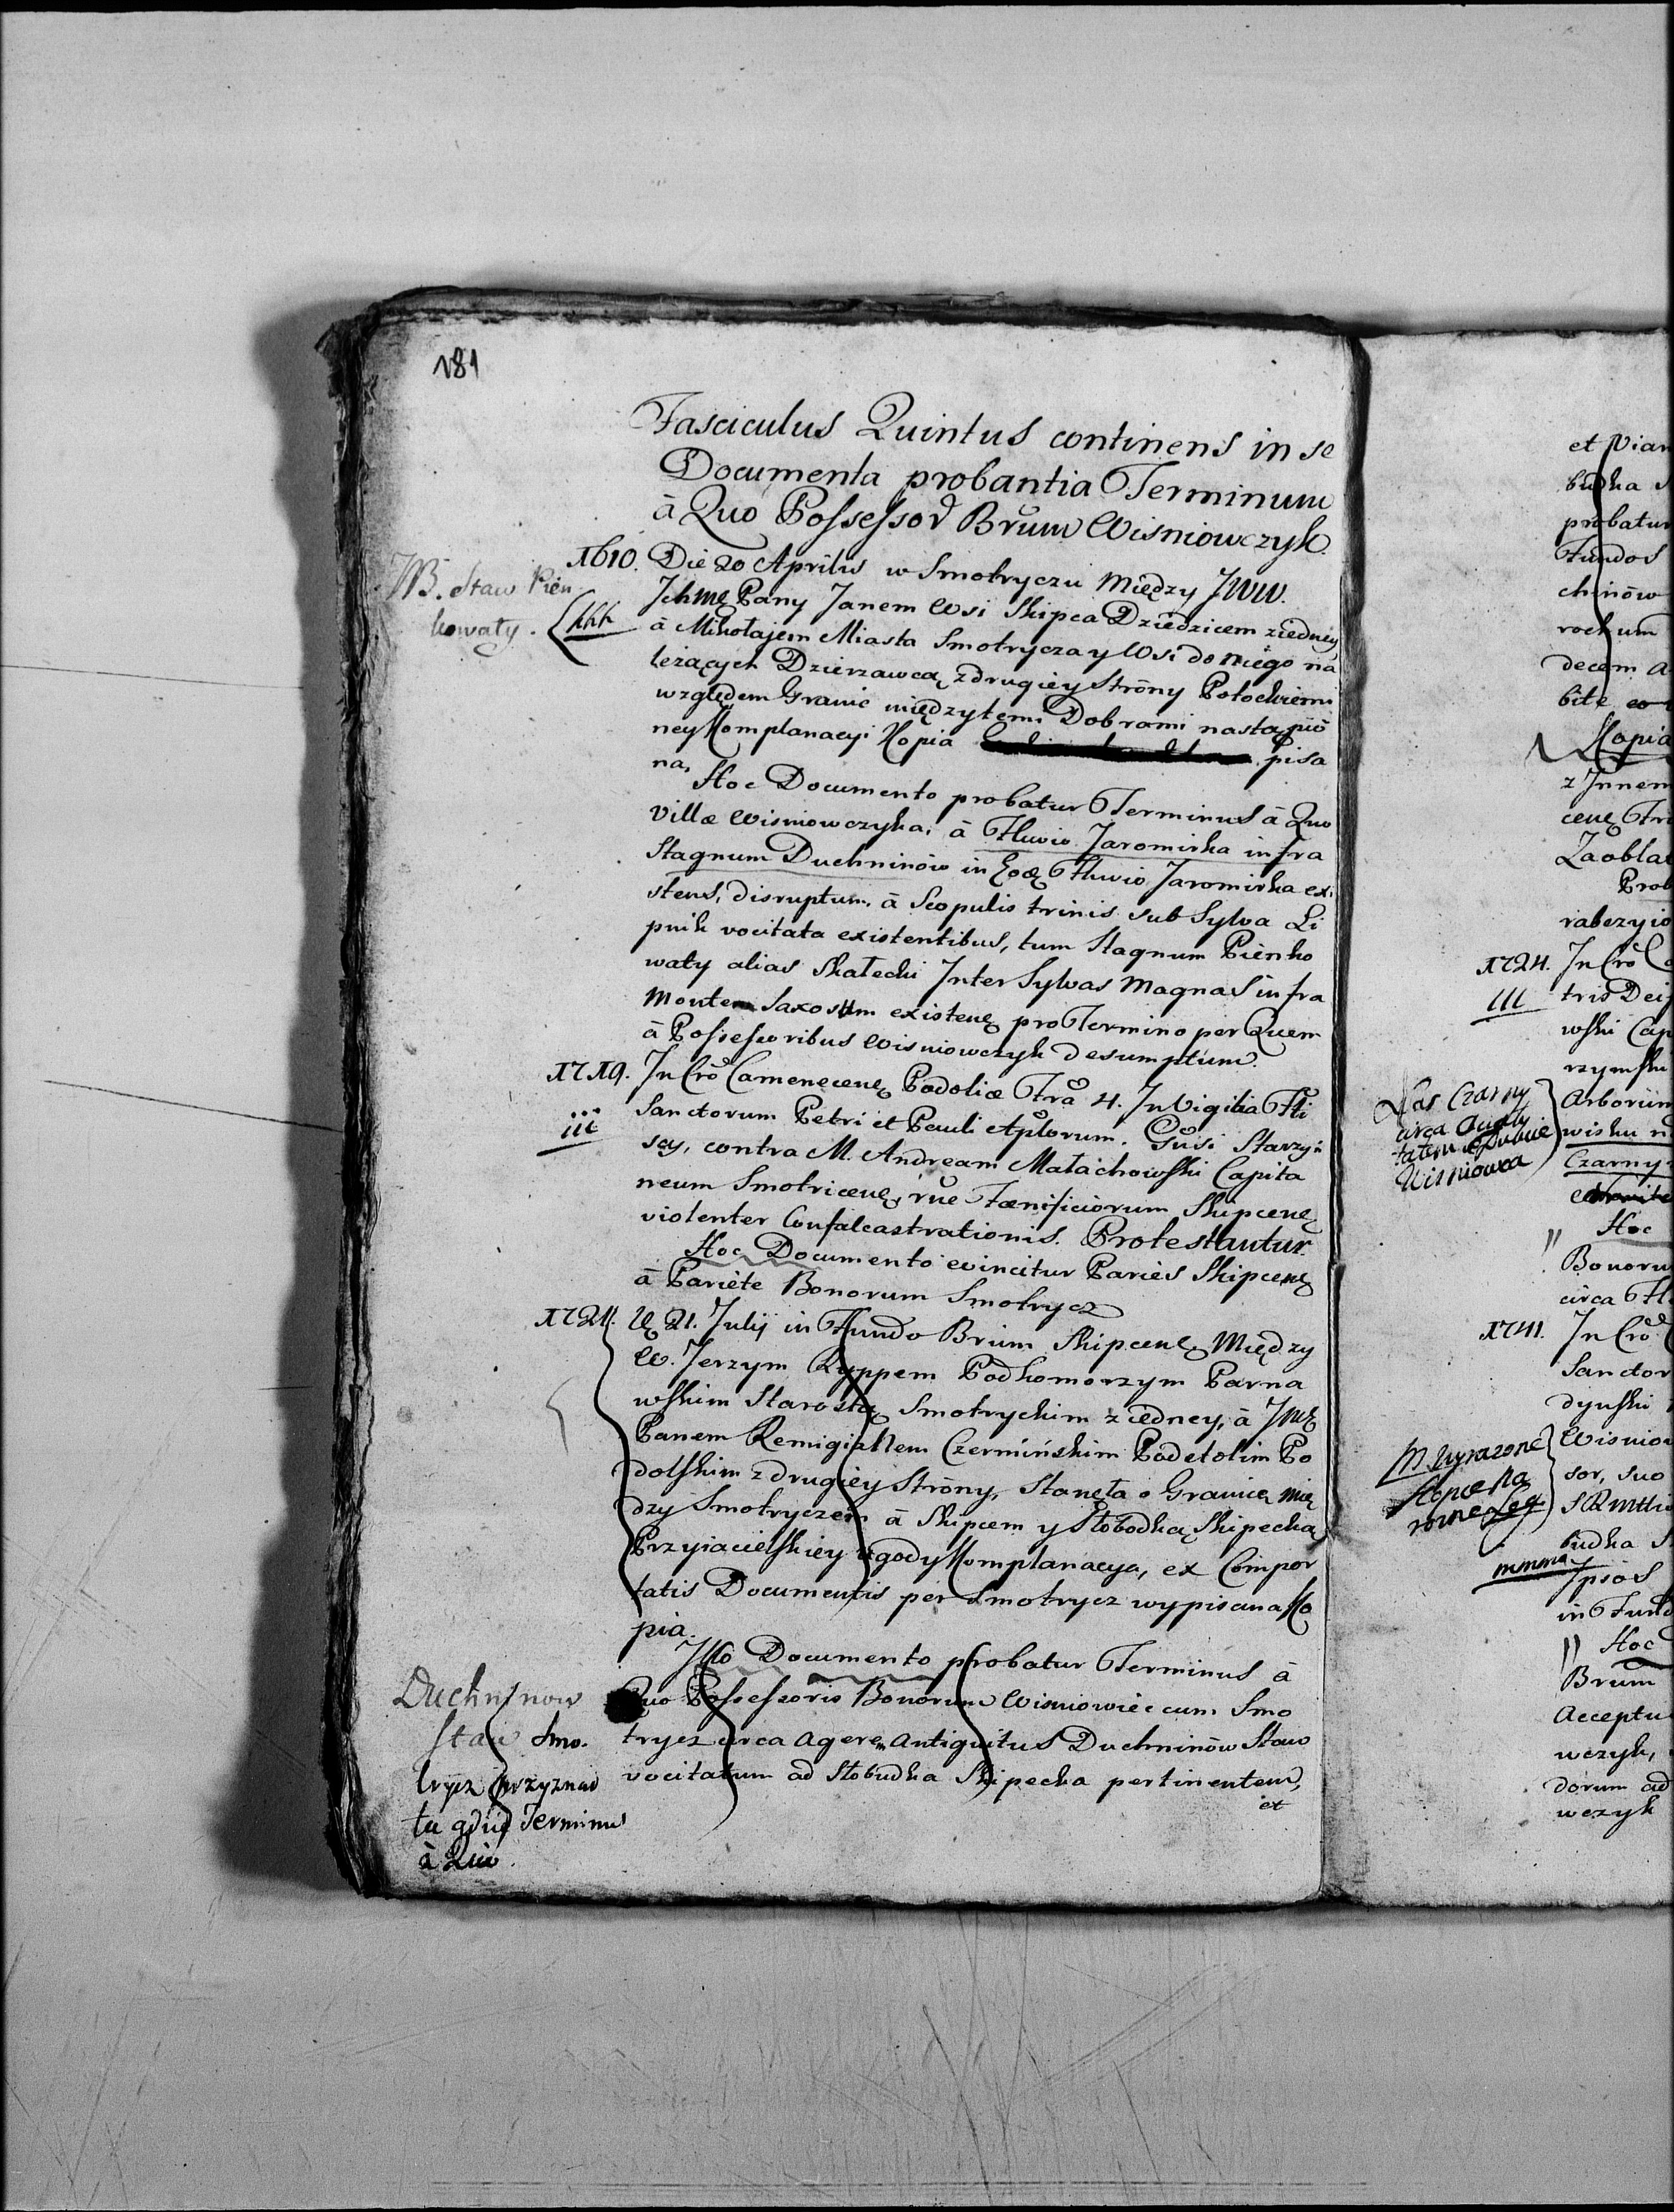 181
Fasciculus Quintus continens in se
Documenta probantia Terminum
à Quo Possessor Brum Wisniowczyk.
1610. Die 20 Aprilis w Smotryczu Między JWW.
NB. Staw Pien
kowaty.
kkk
Jchmę Pany Janem Wsi Skipca Dziedzicem ziedney
à Mikołajem Miasta Smotrycza y Wsi do niego na
leżących Dzierzawcą zdrugiey Strony Potockiemi
względem Granic międzytemi Dobrami nastąpio
ney Komplanacyi Kopia pisa
na,
Hoc Documento probatur Terminus à Quo
Villæ Wisniowczyka, à Fluvio Jaromirka infra
Stagnum Duchninów in Fluvio Jaromirka exi
stens, disruptum, à Scopulis trinis sub Sylva Li
pnik vocitata existentibus, tum Stagnum Pienko
waty alias Skałecki Inter Sylvas Magnas infra
Montem Saxosum existenę pro Termino per Quem
à Possessoribus Wisniowczyk desumptum.
1719. In Cro Camenecenę Podoliæ Fra 4. In Vigilia Fti
iii
Sanctorum Petri et Pauli Aplorum. Gusi Starzyń
scy, contra M. Andream Małachowski Capita
neum Smotricenę, rne Fænificiorum Skipcenę
violenter Confalcastrationis. Protestantur.
Hoc Documento evincitur Paries Skipcenę
à Pariete Bonorum Smotrycz
1724. 21. Julij in Fundo Brum Skipcenę Między
W. Jerzym Ryppem Podkomorzym Parna
wskim Starostą Smotryckim ziedney, à Jmę
Panem Remigiałem Czermińskim Podstolim Po
dolskim z drugiey Strony, Stanęła o Granicę mię
dzy Smotryczem à Skipcem y Słobodką Skipecką
Przyiacielskiey ugody Komplanacya, ex Compor
tatis Documentis per Smotrycz wypisana Ko
pia.
Documento probatur Terminus à
Quo Possessoris Bonorum Wisniowiec cum Smo
trycz circa Agerem Antiquitus Duchninów Staw
vocitatum ad Słobudka Skipecka pertinentem,
et
Duchninow
Staw Smo.
trycz przyznaie
tu gdzie Terminus
à Quo.
et Vian
budka S
probatur
Fundos
chinów
rockum
decem a
bite
Kopia
z Jnnem
cenę
Zaoblat
Prob
rabczyio
1724. In Cro
lll
tris Dei
wski Cap
rzymski
Las Czarny
circa
Wisniowca
Arborum
wisku
Czarny
Hoc
Bonoru
circa
1741. In Cro
Sanctor
dynski
Wisniow
sor, suo
budka S
mmm
Ipsos
in Fund
Hoc
Brum
Acceptu
wczyk,
dorum ad
wczyk